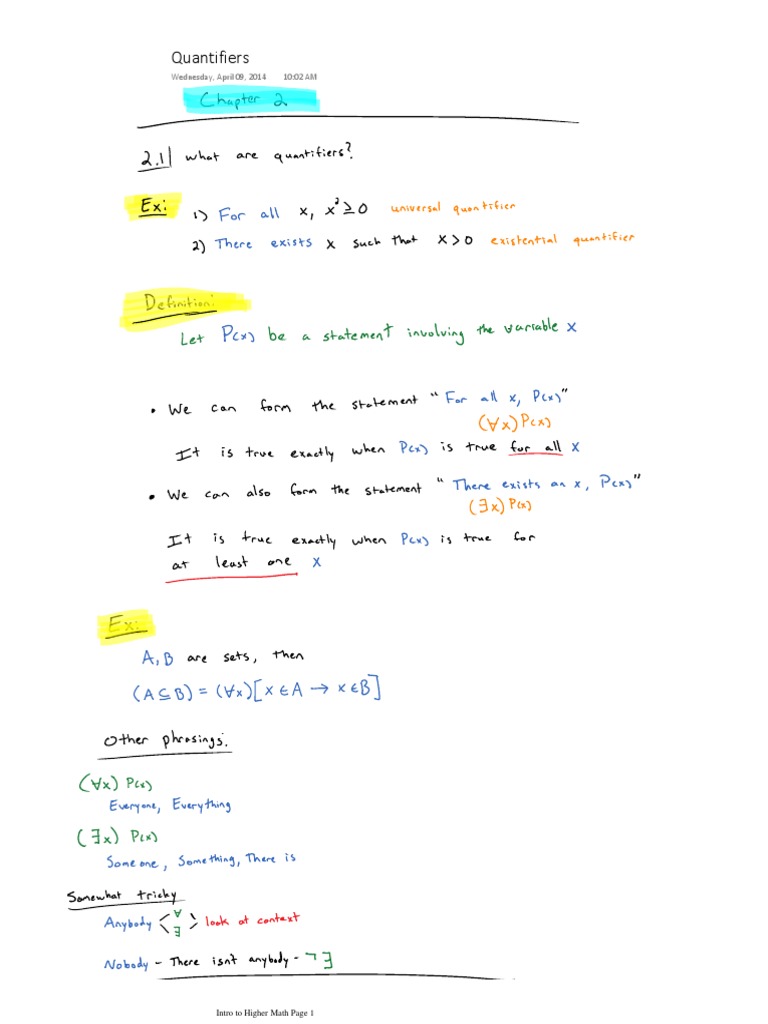 Quantifiers
Wednesday, April 09, 2014 10:02 AM
Chapter 2
2.1 | What are quantifiers?
Ex: 1) For all x, x² ≥ 0 universal quantifier
2) There exists x such that x > 0 existential quantifier
Definition:
Let P(x) be a statement involving the variable x
• We can form the statement "For all x, P(x)"
(∀x) P(x)
It is true exactly when P(x) is true for all x
• We can also form the statement "There exists an x, P(x)"
(∃x) P(x)
It is true exactly when P(x) is true for
at least one x
Ex:
A, B are sets, then
(A ⊆ B) = (∀x)[x ∈ A → x ∈ B]
Other phrasings:
(∀x) P(x)
Everyone, Everything
(∃x) P(x)
Someone, Something, There is
Somewhat tricky
Anybody < ∀ ∃ > look at context
Nobody - There isn't anybody - ¬∃
Intro to Higher Math Page 1